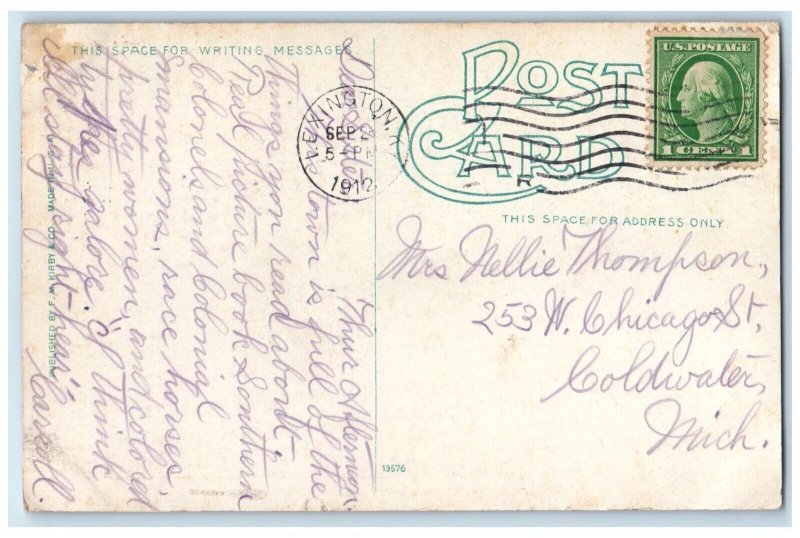 THIS SPACE FOR WRITING MESSAGES
POST
CARD
U.S. POSTAGE
1 CENT 1
LEXINGTON, K
SEP 2
5 - PM
1912
R
THIS SPACE FOR ADDRESS ONLY.
Thur Afternoon.
This town is full of the
things you read about
Real picture book Southern
Colonels and Colonial
mansions, race horses,
pretty women, and colored
galore. I think
stay right here
Carroll.
Mrs Nellie Thompson,
253 W. Chicago St,
Coldwater,
Mich.
PUBLISHED BY F. M. KIRBY & CO. MADE IN
13576